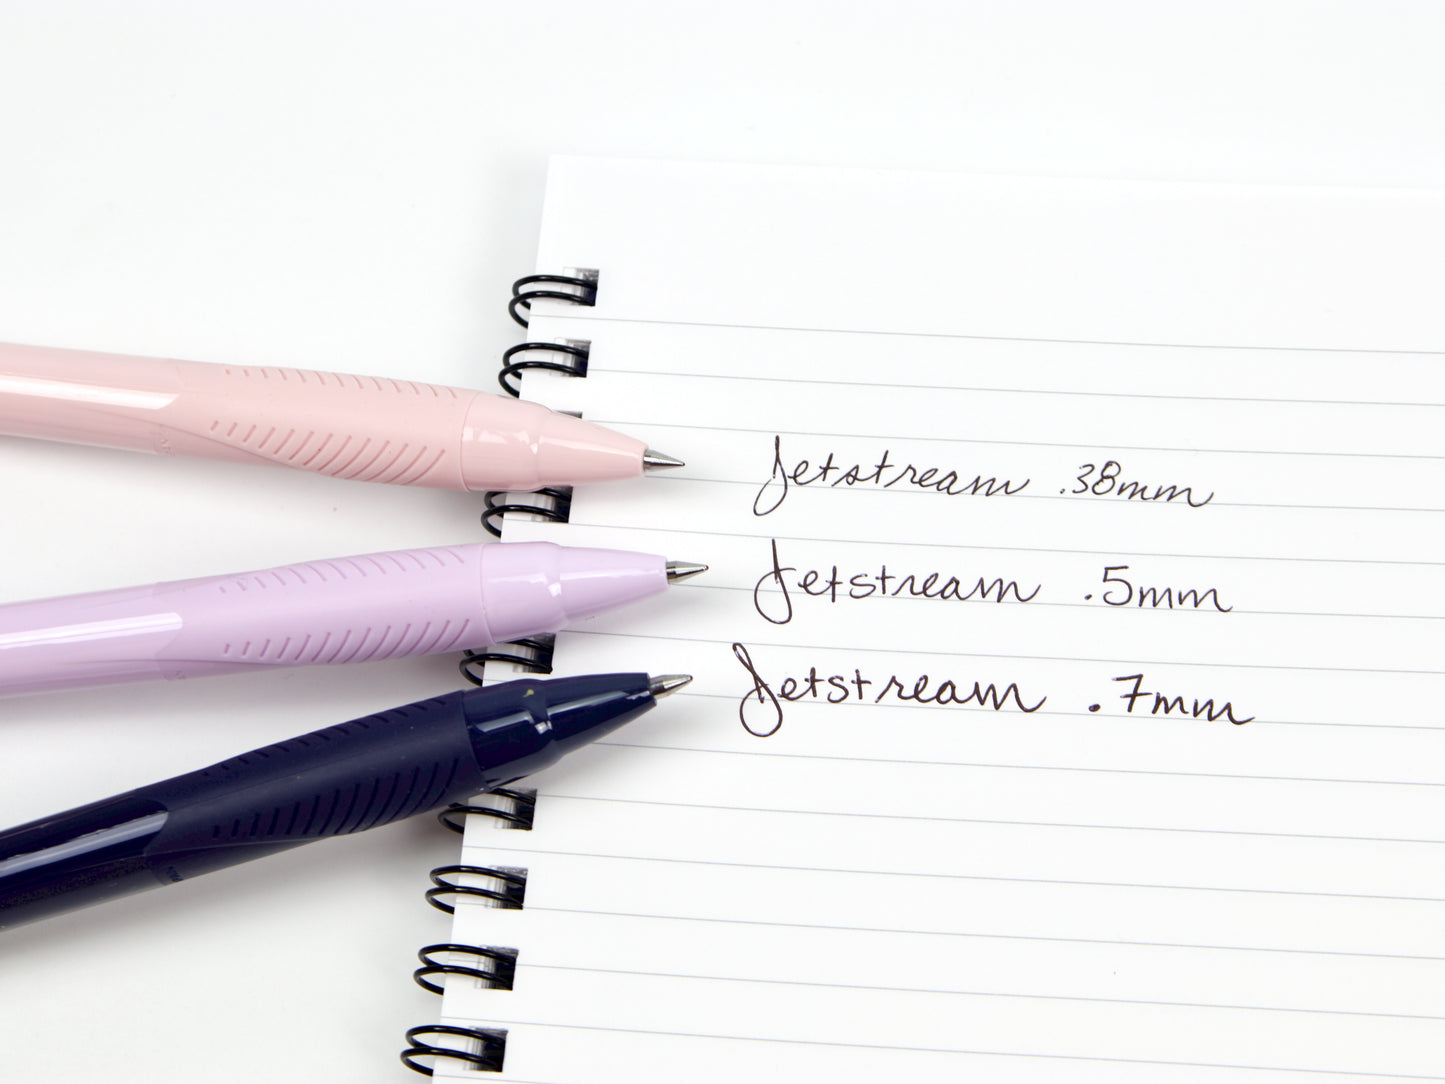 Jetstream .38mm
Jetstream .5mm
Jetstream .7mm